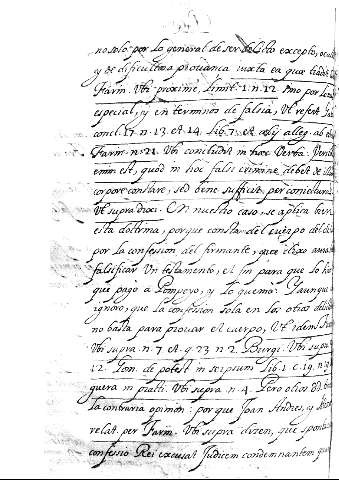 no solo por lo general de ser delicto excepto, ocul
y de dificultosa provança iuxta ea quæ tradit
Farin. Vbi proxime, Limit. 1. n. 12. sino por
especial, y en terminos de falsia, Vt refert
concl. 17. n. 13. et 14. lib. 7. et alij alleg. ab
Farin. n. 21. Vbi concludit in hæc Verba: Veri
enim est, quod in hoc falsi crimine, debet de
corpore constare, sed bene sufficit, per coniecturas
Vt supra dixi. En nuestro caso, se aplica bien
esta doctrina, porque consta del cuerpo del de
por la confession del firmante, que dixo
falsificar Vn testamento, el fin para que lo hi
que pagó a Pompeyo, y lo quemó: Y aunque
ignoro, que la confession sola en los otros deli
no basta para provar el cuerpo, Vt idem
Vbi supra. n. 7. et q. 23 n. 2. Vbi sup
12. de potest in scripsum lib. 1. c. 19. n.
guera in Vbi supra n. 4. Pero otros DD.
la contraria opinion: por que Joan Andres, y
relat. per Farin. Vbi supra dizen, que spont
confessio Rei excusat Judicem condemnantem